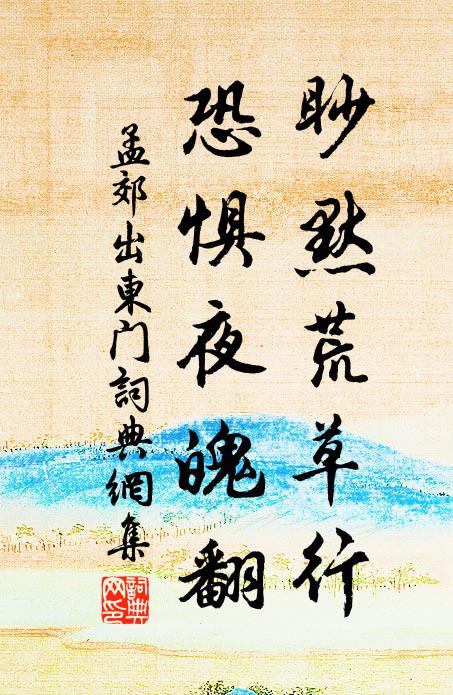 眇黙荒草行
恐惧夜魄翻
孟郊出東门詞典網集
詞典
网印